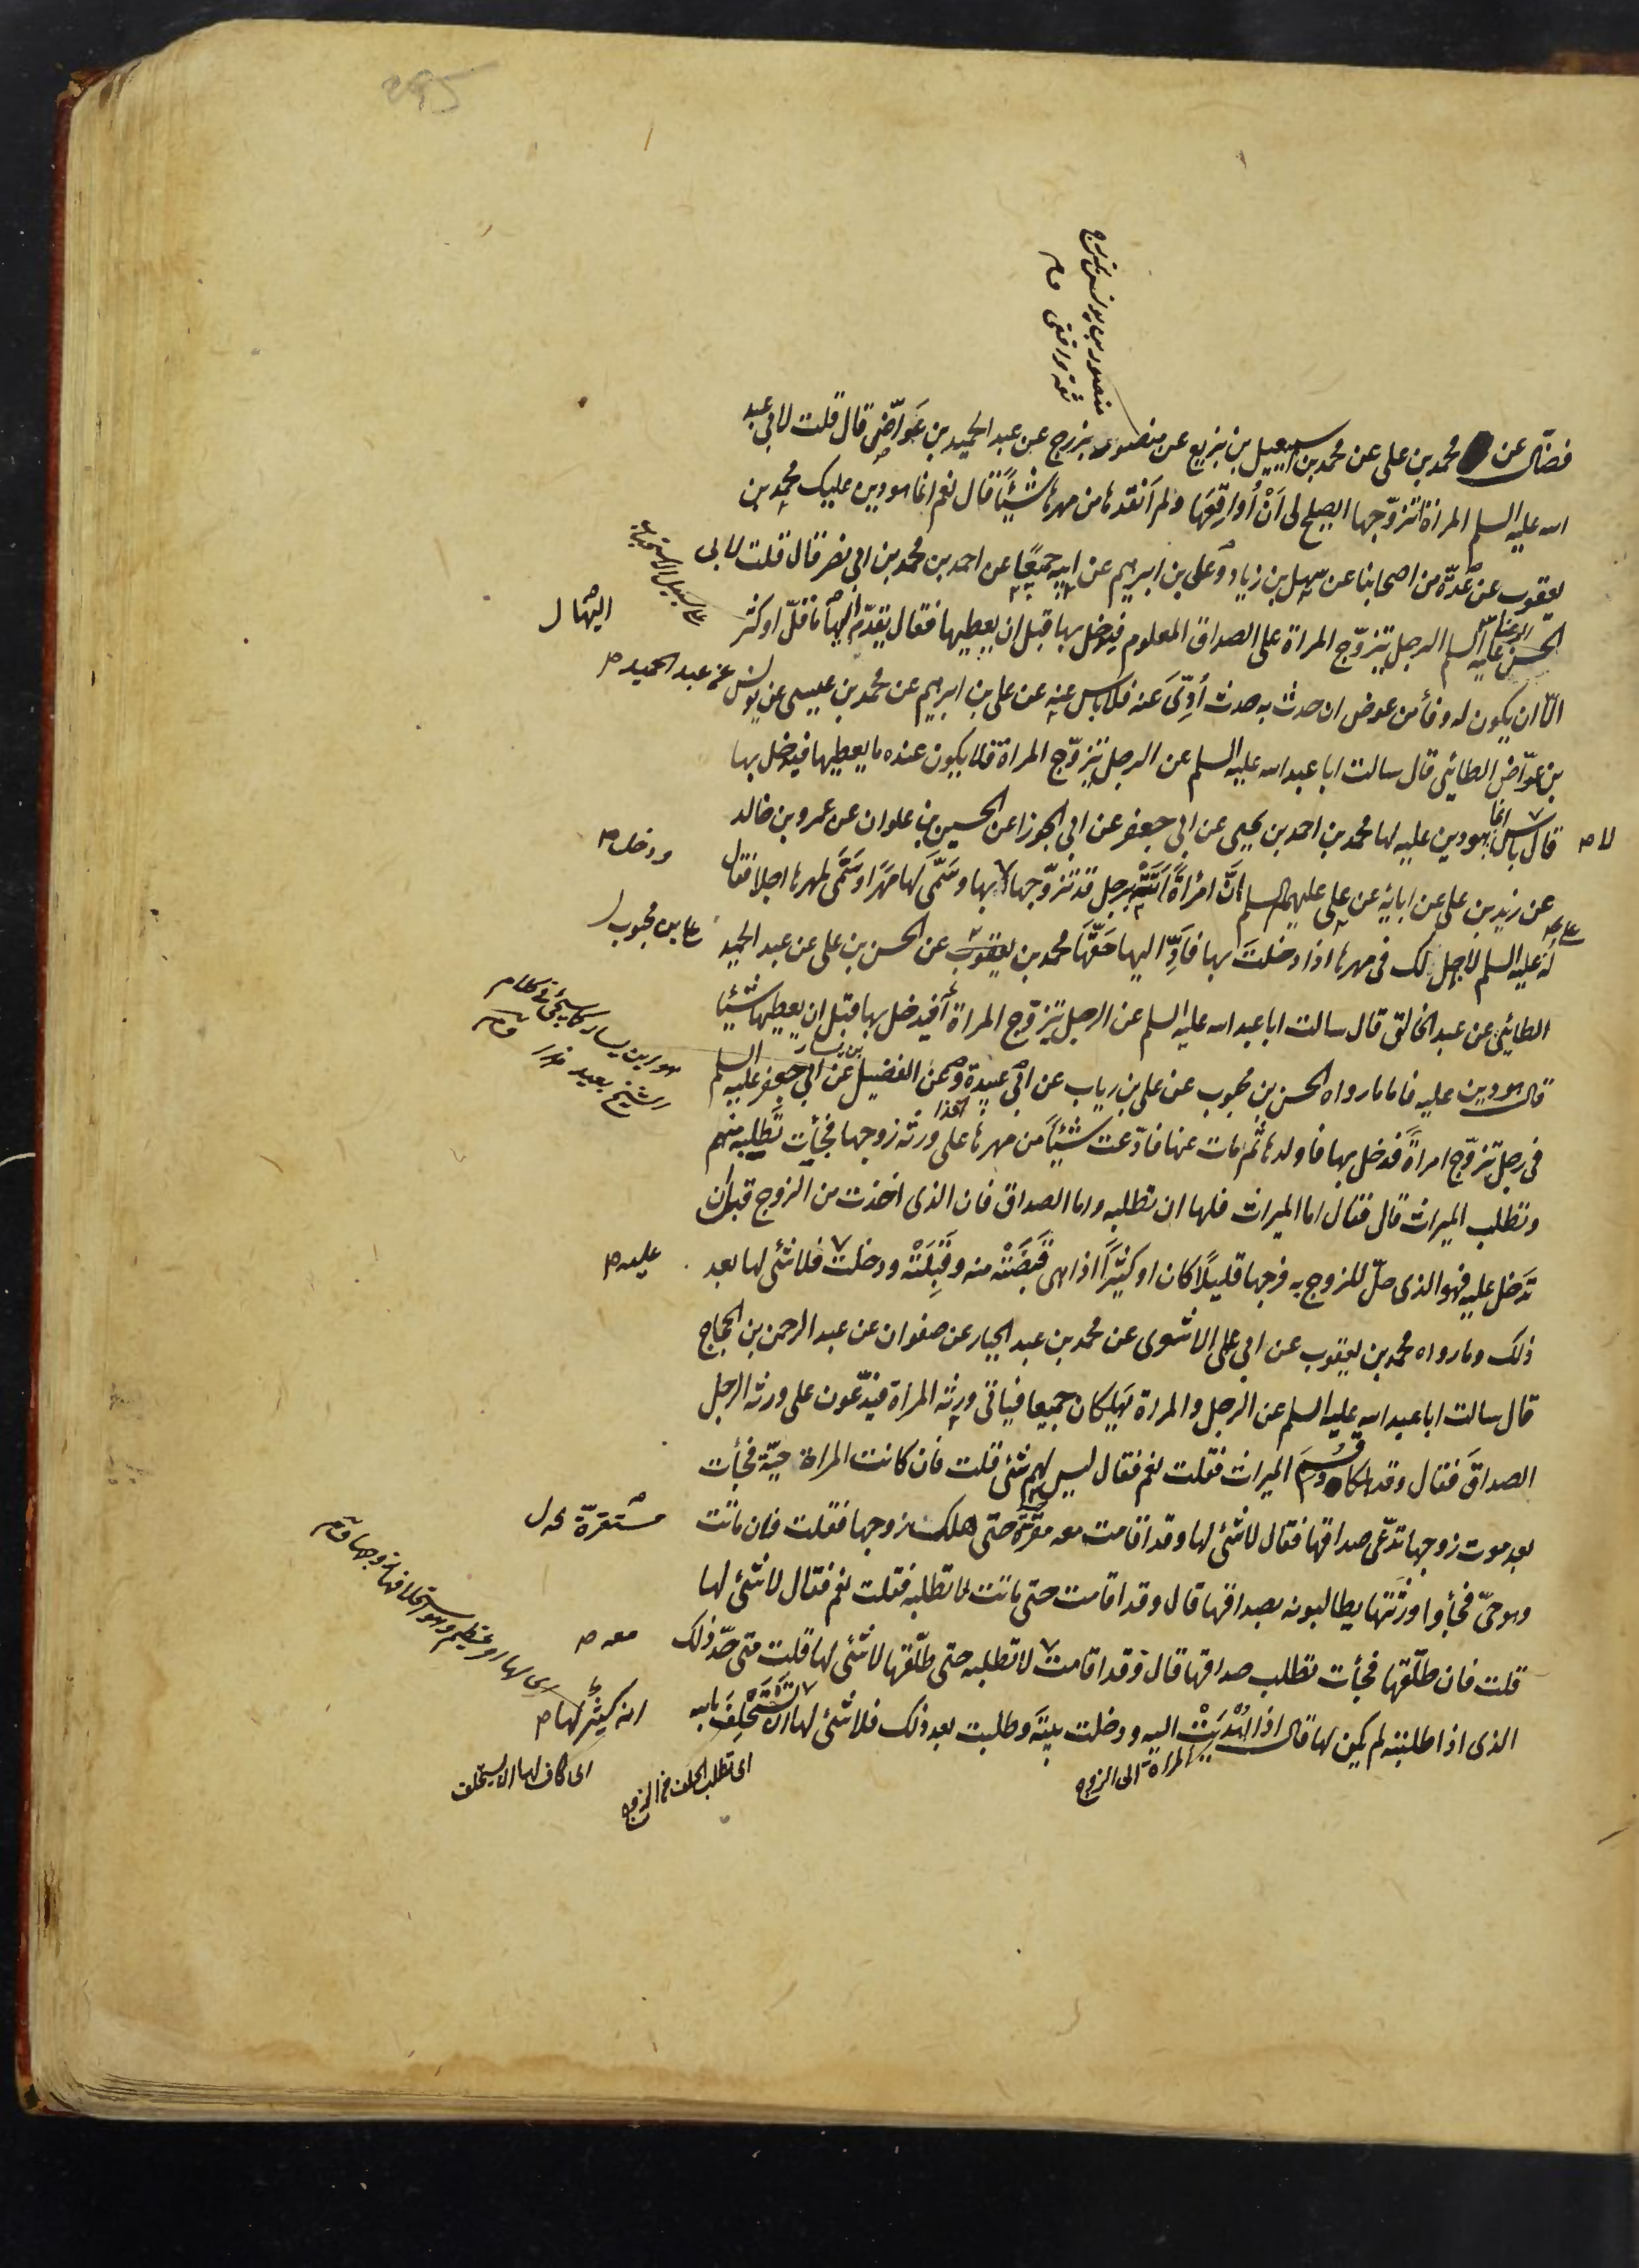 295
منصور بن يونس بزرج
ثقة واقفى م
فضّال عن محمد بن على عن محمد بن اسمعيل بن بزيع عن منصور بزرج عن عبد الحميد بن عَواّض قال قلت لابى عبد
الله عليه السلم المراة اتزوّجها ايصلح لى اَنْ اُواقِعَهَا ولم اَنقدها من مهرها شيئًا قال نعم انما هو دين عليك محمد بن
يعقوب عن عدّة من اصحابنا عن سهل بن زياد وعلى بن ابرهيم عن ابيه جميعًا عن احمد بن محمد بن ابى نصر قال قلت لابى
الحسن عليه السلم الرجل يتزوّج المراة على الصداق المعلوم فيدخل بها قبل ان يعطيها فقال يقدّم اليها ما قلّ او كثر
اليها ل
الّا ان يكون له وفاء من عوض ان حدث به حدث اُدِّىَ عَنه فلا باس عنه عن على بن ابرهيم عن محمد بن عيسى عن يونس
عن عبد الحميد ص
بن عوّاض الطائى قال سالت ابا عبد الله عليه السلم عن الرجل يتزوّج المراة فلا يكون عنده ما يعطيها فيدخل بها
لا ص
قال باس انما هو دين عليه لها محمد بن احمد بن يحيى عن ابى جعفر عن ابى الجوزا عن الحسين بن علوان عن عمرو بن خالد
عن زيد بن على عن ابائه عن على عليهم السلم انَّ امْرَأةً اَتَتْه برجل قد تزوّجها بها وسَمَّى لَهَا مَهْرًا وسَمَّى لمهرها اجلا فقال
ودخل ص
له عليه السلم لا اجل لك فى مهرها اذا دخلتَ بها فَاَدِّ اليها حقَّهَا محمد بن يعقوب عن الحسن بن على عن عبد الحميد
الطائى عن عبد الخالق قال سالت ابا عبد الله عليه السلم عن الرجل يتزوّج المراة أفيدخل بها قبل ان يعطيها شيئًا
هو ابن يسار كما سيجئ فى كلام
الشيخ بعيد هذا م
قال هو دين عليه فاما ما رواه الحسن بن محبوب عن على بن رياب عن ابى عبيدة وعن الفضيل بن يسار عن ابى جعفر عليه السلم
فى رجل تزوّج امراةً فدخل بها فاولدها ثم مات عنها فادّعت شيئًا من مهرها على ورثة زوجها فجأت تَطلبه منهم
وتطلب الميراث قال فقال اما الميراث فلها ان تطلبه واما الصداق فان الذى اخذت من الزوج قبل ان
تدخل عليه فهو الذى حلّ للزوج به فرجها قليلًا كان او كثيرًا اذا هى قَبَضَتْه منه وقَبِلَتْه ودخلت فلا شئ لها بعد
عليه ص
ذلك وما رواه محمد بن يعقوب عن ابى على الاشعرى عن محمد بن عبد الجبار عن صفوان عن عبد الرحمن بن الحجاج
قال سالت ابا عبد الله عليه السلم عن الرجل والمراة يهلكان جميعا فياتى ورثة المراة فيدّعون على ورثة الرجل
الصداقَ فقال وقد هلكا وقسِمَ الميراث فقلت نعم فقال ليس لهم شئ قلت فان كانت المراة حيّة فجأت
بعد موت زوجها تدّعى صداقها فقال لا شئ لها وقد اقامت معه مقرّة حتى هلك زوجها فقلت فان ماتت
مستقرّة ل
وهو حىّ فجأوا ورَثَتها يطالبونه بصداقها قال وقد اقامت حتى ماتت لا تطلبه فقلت نعم فقال لا شئ لها
قلت فان طلّقها فجأت تطلب صداقها قال وقد اقامت لا تطلبه حتى طلّقها لا شئ لها قلت متى حدّ ذلك
معه ص
الذى اذا طلبته لم يكن لها قال اذا اُهْدِيَتْ اليه ودخلت بيته وطلبت بعد ذلك فلا شئ لها ان تَسْتَحْلِفَ بالله
انه كثيرٌ لها ص
المراة الى الزوج
اى تطلب الحلف من الزوج